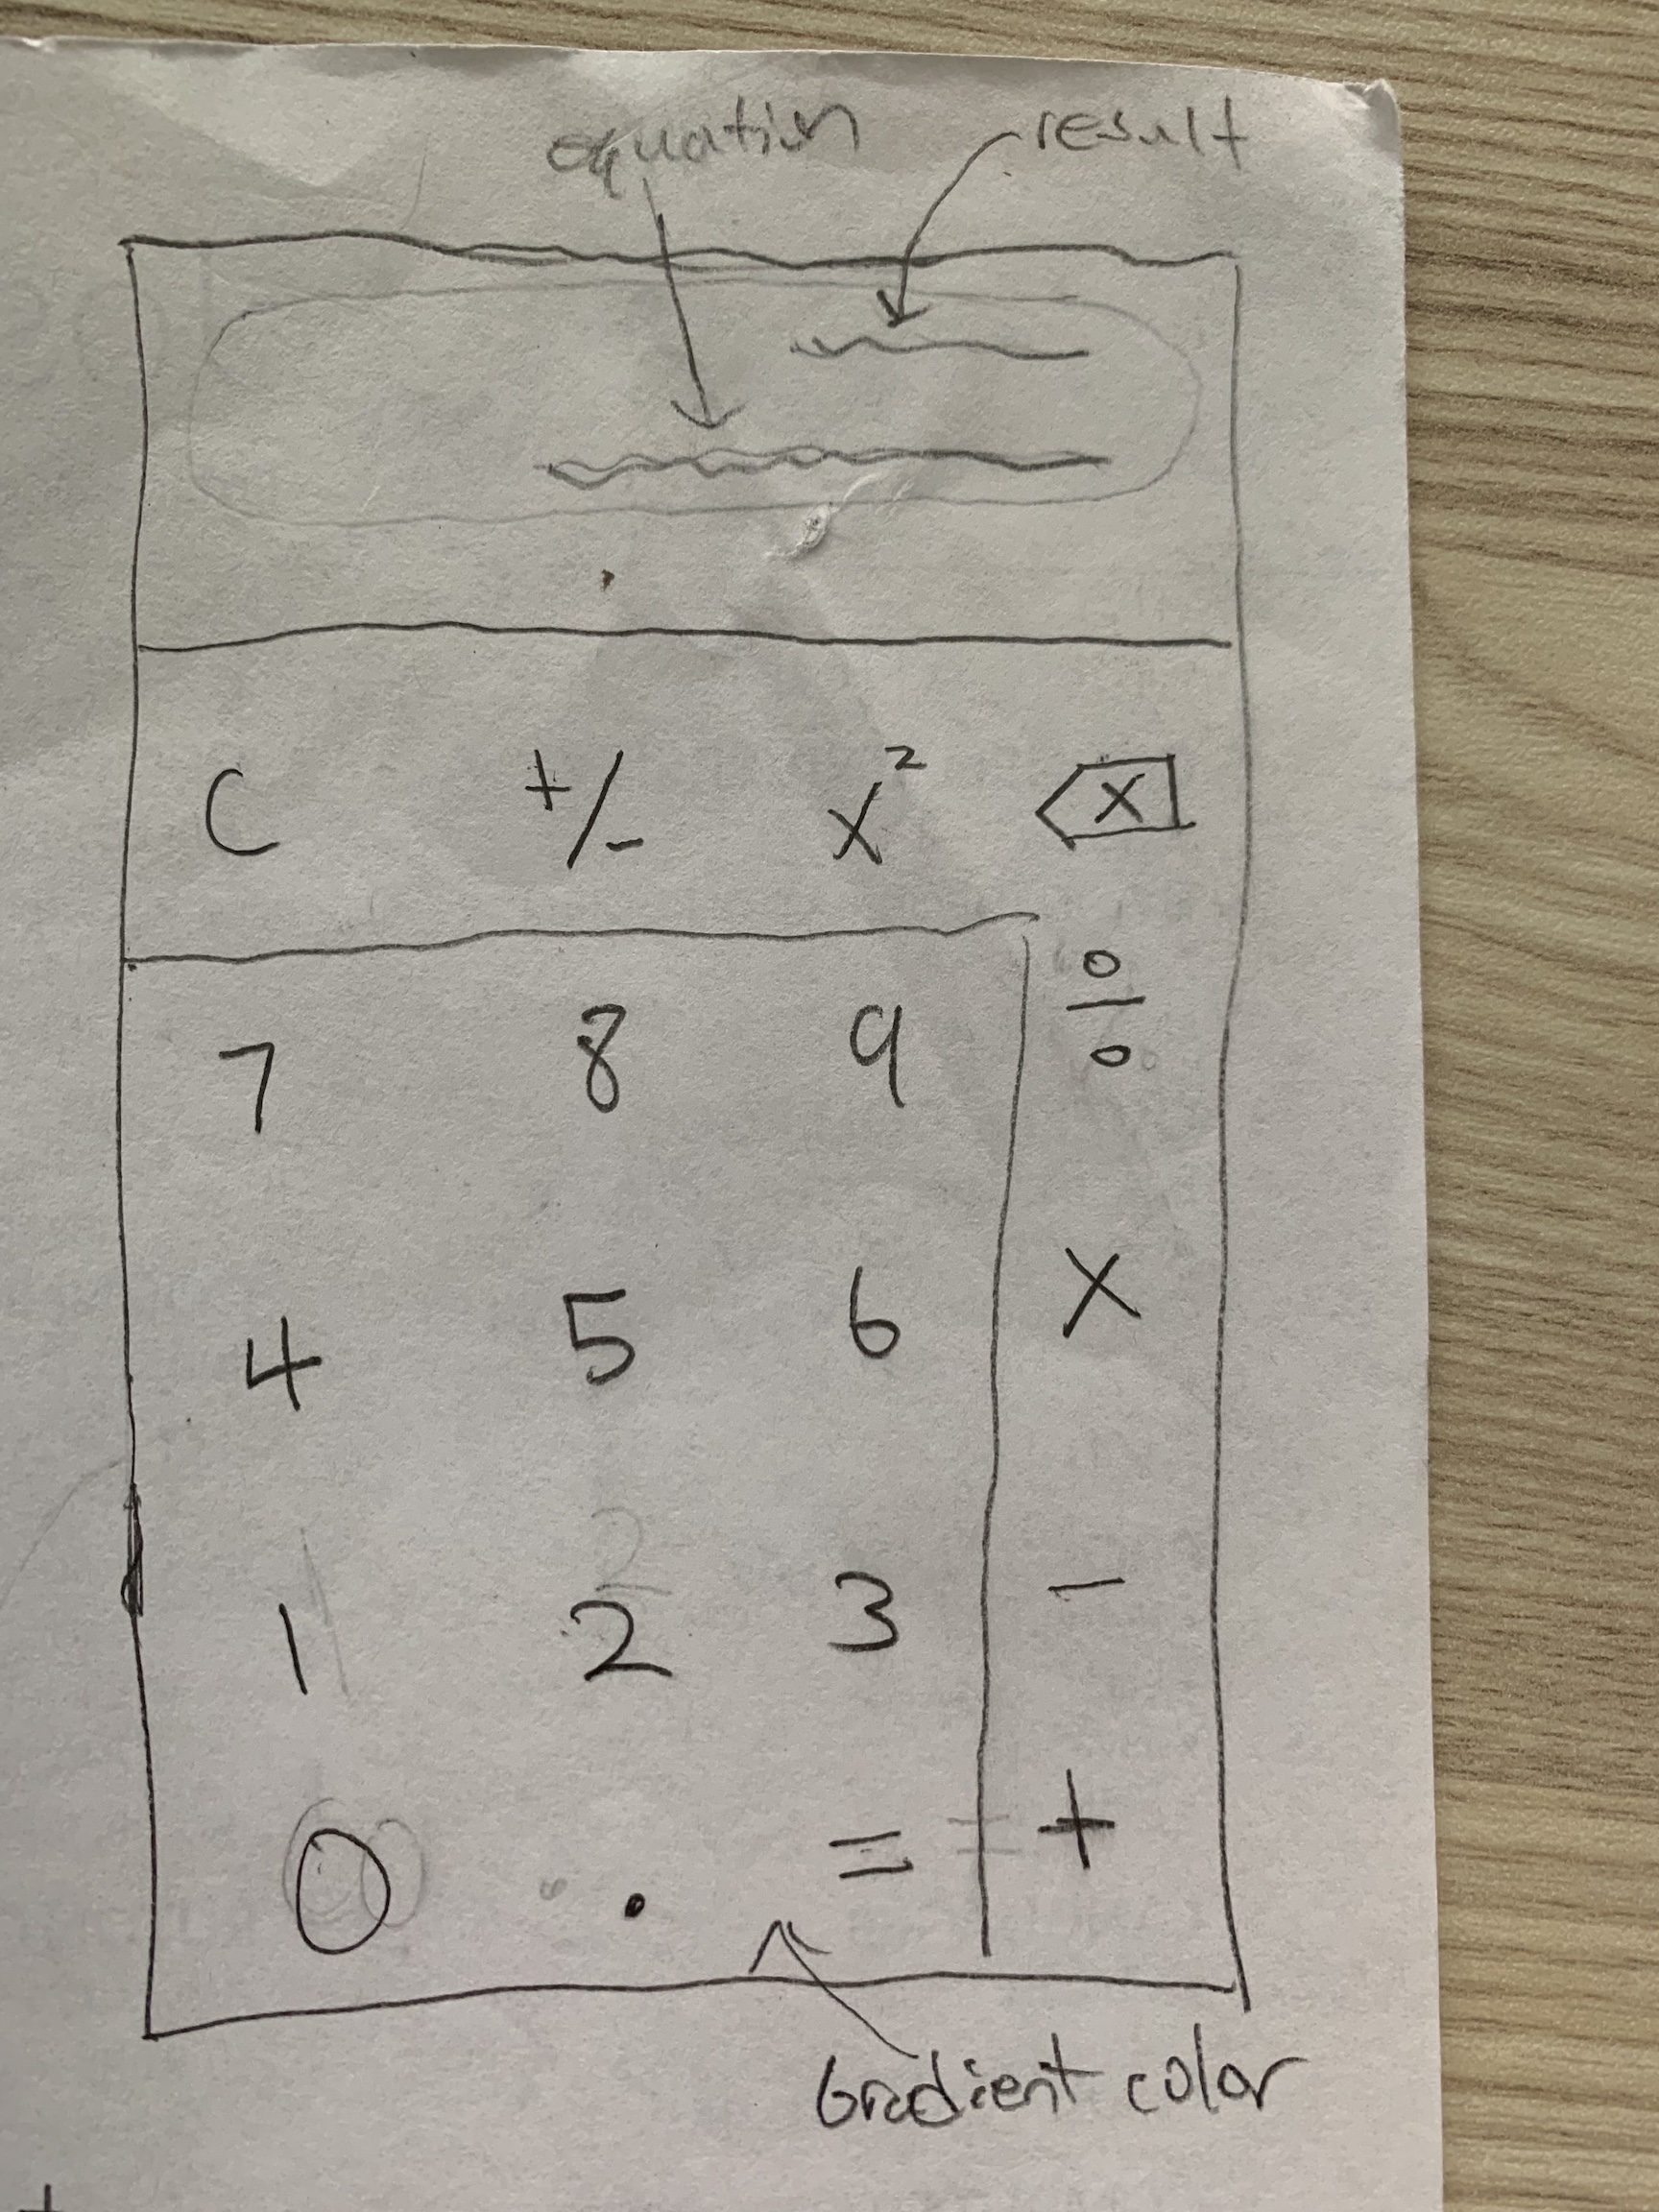 equation result
C +/- x² ⌫
7 8 9 ÷
4 5 6 ×
1 2 3 -
0 . = +
Gradient color